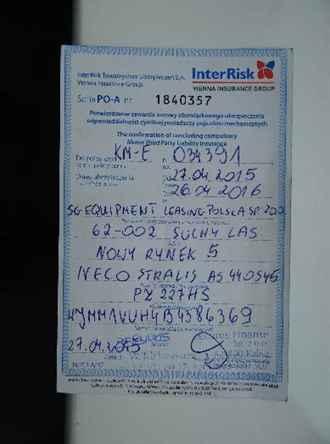 InterRisk
InterRisk Towarzystwo Ubezpieczeń S.A.
Vienna Insurance Group
VIENNA INSURANCE GROUP
Seria PO-A nr 1840357
Potwierdzenie zawarcia umowy obowiązkowego ubezpieczenia
odpowiedzialności cywilnej posiadaczy pojazdów mechanicznych
The confirmation of concluding compulsory
Motor Third Party Liability Insurance
Do polisy KM-E 034391
27.04.2015
26.04.2016
SG EQUIPMENT LEASING POLSKA SP. ZOO
62-002 SUCHY LAS
NOWY RYNEK 5
IVECO STRALIS AS440S45
PZ 227HS
27.04.2015